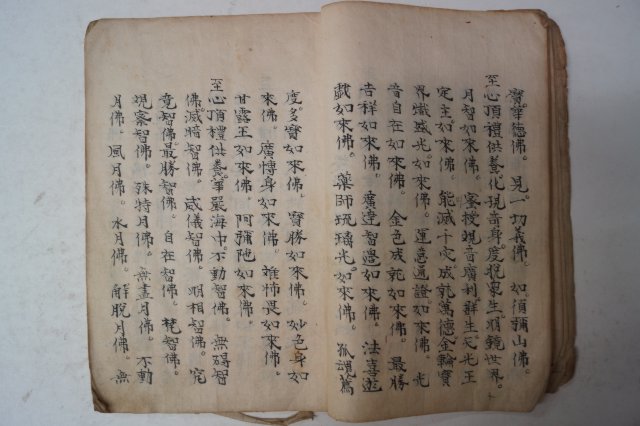 寶華德佛。見一切義佛。如須彌山佛。
至心頂禮供養化現音身度脫衆生。消鏡世界。
月智如來佛。密授現音廣利群生天光王
定主。如來佛。能滅千灾成就萬德金輪寶
界熾盛光如來佛。運意通證如來佛。光
音自在如來佛。金色成就如來佛。最勝
吉祥如來佛。廣達智邊如來佛。法喜遊
戱如來佛。藥師琉璃光。如來佛。孤魂薦
度。多寶如來佛。寶勝如來佛。妙色身如
來佛。廣博身如來佛。離怖畏如來佛。
甘露王如來佛。阿彌陁如來佛。
至心頂禮供養。華嚴海中。不動智佛。無碍智
佛。滅暗智佛。威儀智佛。明相智佛。究
竟智佛。最勝智佛。自在智佛。梵智佛。
觀察智佛。殊特月佛。無盡月佛。不動
月佛。風月佛。水月佛。解脫月佛。無